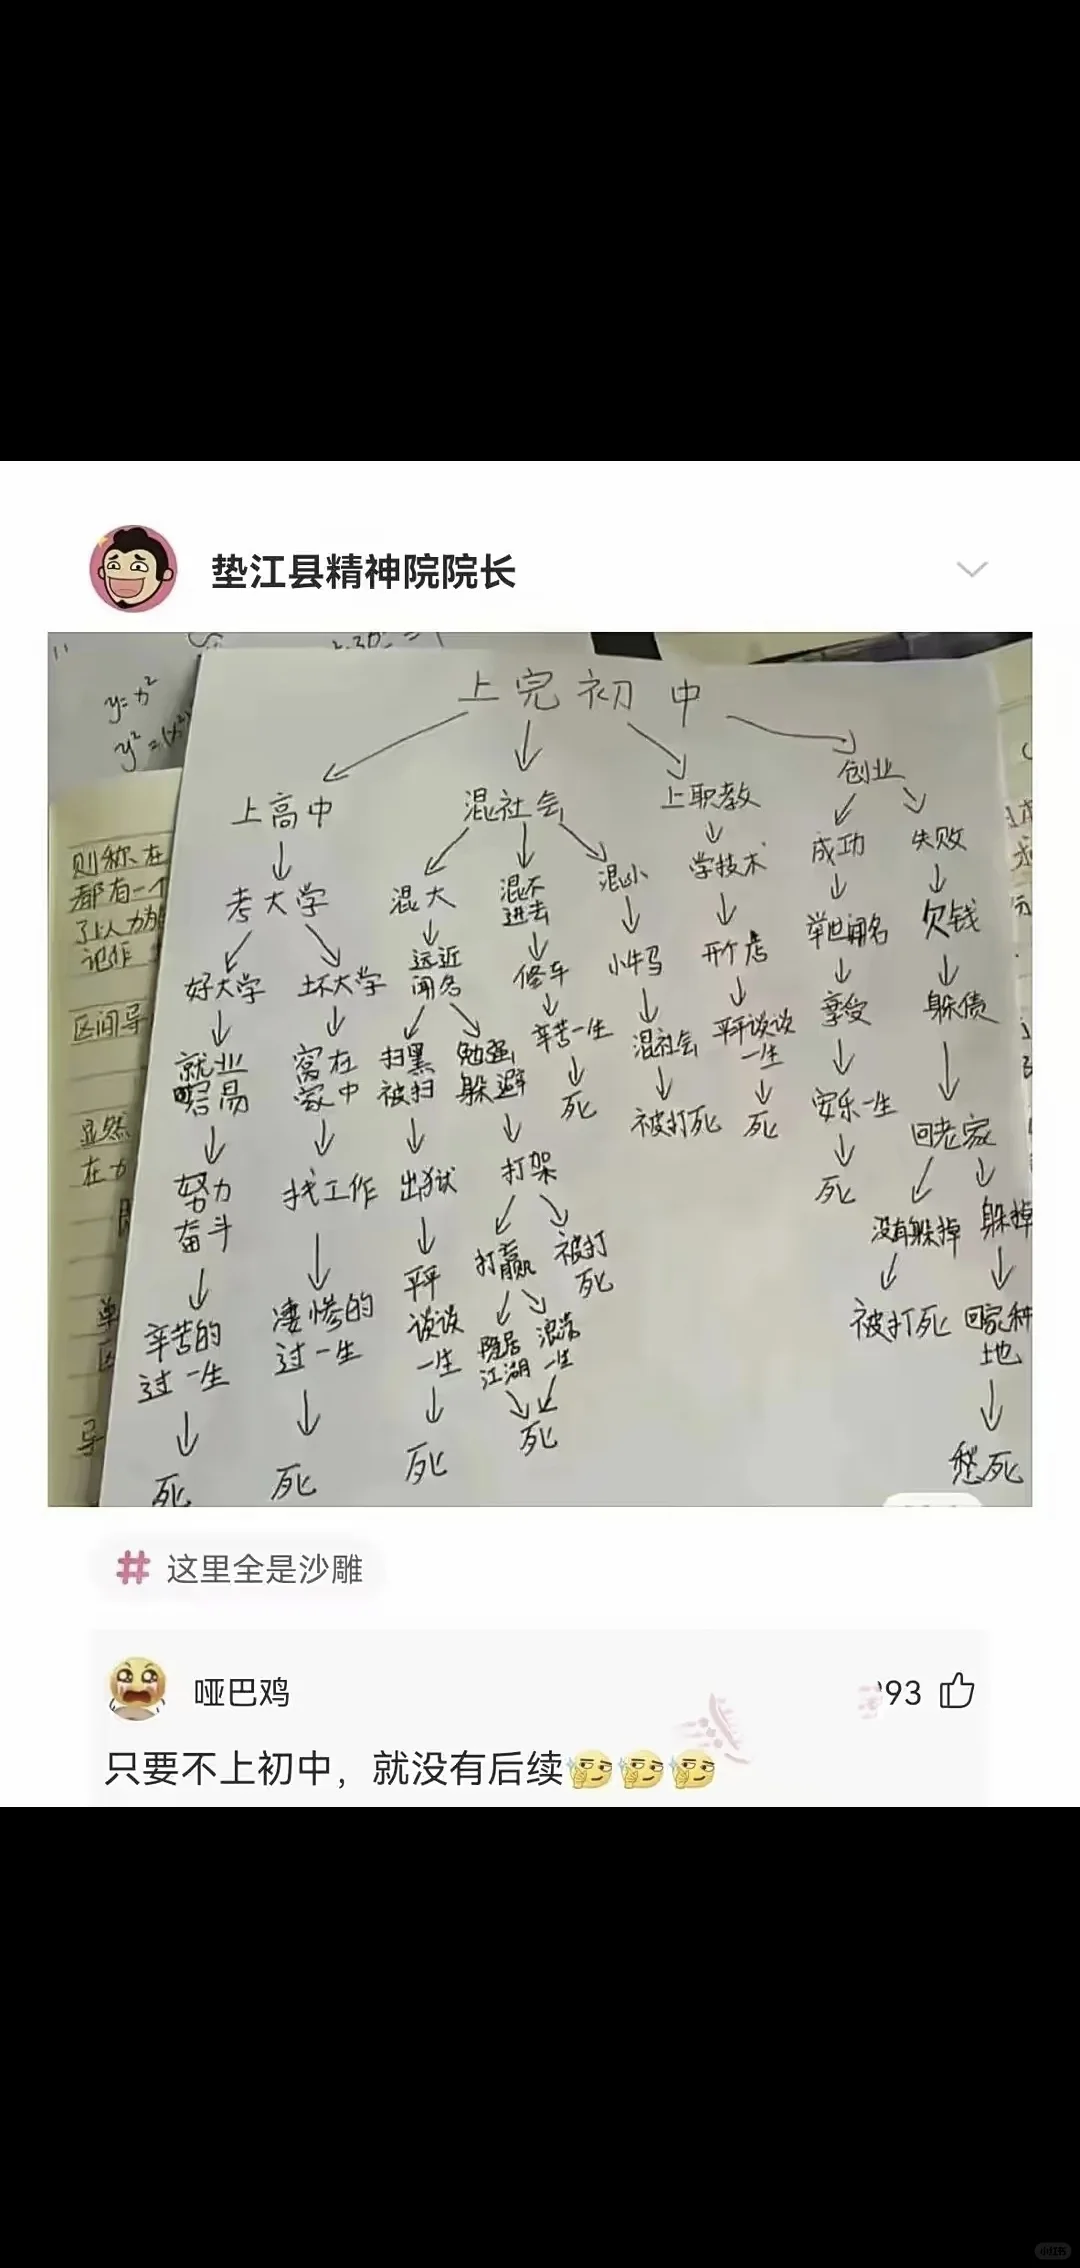 垫江县精神院院长
y=x²
上完初中
上高中
混社会
上职教
创业
考大学
混大
混不
进去
混小
学技术
成功
失败
好大学
坏大学
远近
闻名
修车
小牛马
开个店
举世闻名
欠钱
就业
容易
窝在
家中
扫黑
被扫
勉强
躲避
辛苦一生
混社会
平平谈谈
一生
享受
躲债
努力
奋斗
找工作
出狱
打架
死
被打死
死
安乐一生
回老家
辛苦的
过一生
凄惨的
过一生
平平
谈谈
一生
打赢
被打
死
死
没有躲掉
躲掉
隐居
江湖
浪荡
一生
被打死
回家种
地
死
死
死
死
愁死
则称、在
都有一个
记作
区间导
显然
在
导
# 这里全是沙雕
哑巴鸡
93
只要不上初中，就没有后续
小红书